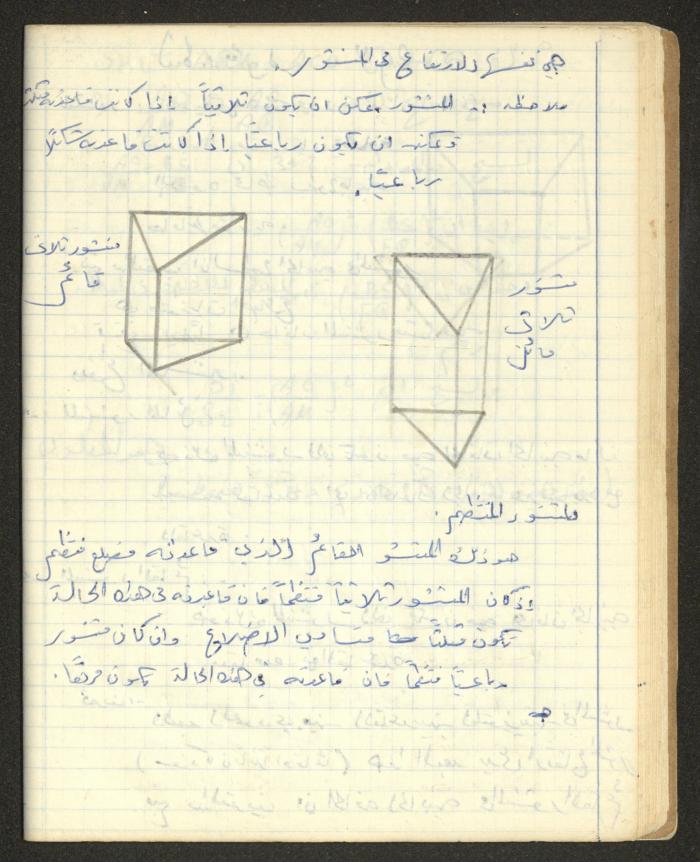 هي نفسها الارتفاع في المنشور .
ملاحظه :. المنشور يمكن ان يكون ثلاثيًا إذا كانت قاعدته مثلثة
ويمكنه ان يكون رباعيًا إذا كانت قاعدته شكلًا
رباعيًا.
منشور ثلاثي
قائم
منشور
ثلاثي
قائم
المنشور المنتظم .
هو ذلك المنشو القائم الذي قاعدته مضلع منتظم
إذ كان المنشور ثلاثيًا منتظمًا فان قاعدته في هذه الحالة
تكون مثلثًا متساوي الاضلاع وان كان منشور
رباعيًا منتظمًا فان قاعدته في هذه الحالة تكون مربعًا.